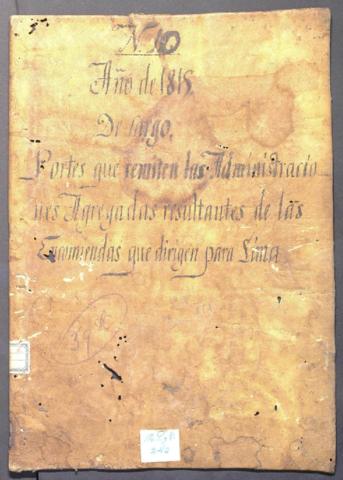 N. 10
Año de 1815.
De cargo.
Portes que remiten las Administracio
nes Agregadas resultantes de las
Encomiendas que dirigen para Lima
39
242